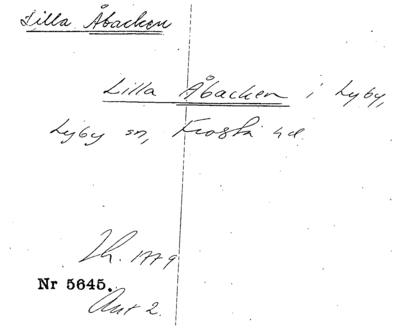 Lilla Åbacken
Lilla Åbacken i Lyby,
Lyby sn, Frosta hd.
Nr 5645.